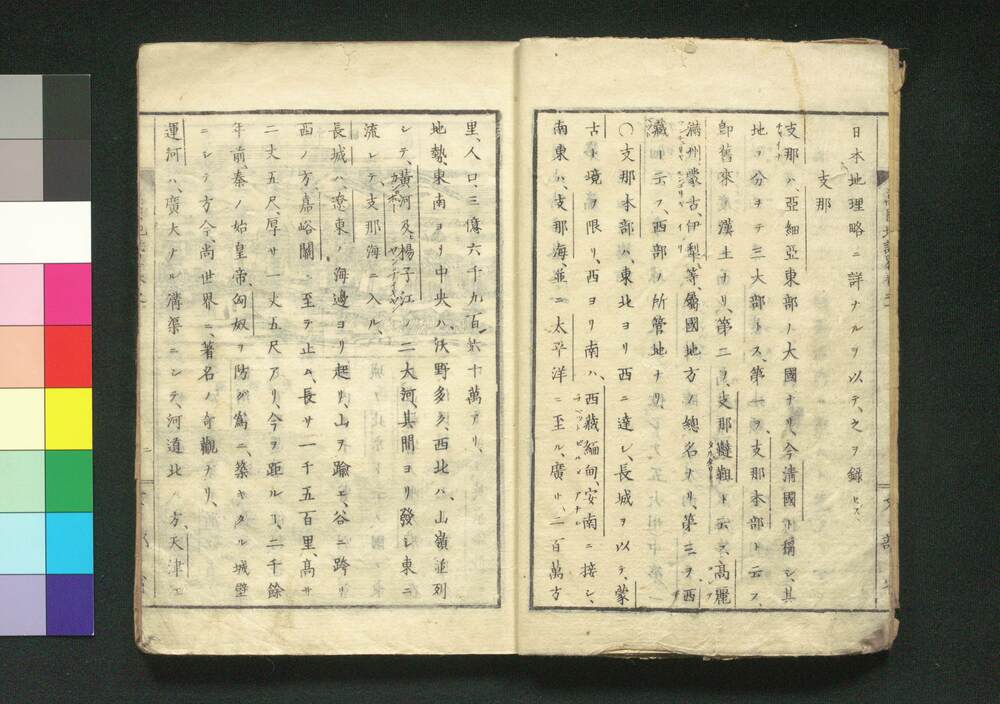 日本地理略ニ詳ナルヲ以テ、之ヲ録セス、
支那
支那ハ、亞細亞東部ノ大國ナリ、今清國ト稱シ、其
地ヲ分ヲテ三大部トス、第一ヲ支那本部ト云フ、
即舊來漢土ナリ、第二ヲ、支那韃靼ト云フ、高麗
滿州、蒙古、伊犁等、屬國地方ノ總名ナリ、第三ヲ西
藏ト云フ、西部ノ所管地ナリ、
〇支那本部ハ、東北ヨリ西ニ達シ、長城ヲ以テ、蒙
古ト境ヲ限リ、西ヨリ南ハ、西藏緬甸、安南ニ接シ、
南東ハ、支那海、並ニ太平洋ニ至ル、廣サ、二百萬方
里、人口、三億六千九百六十萬アリ、
地勢、東南ヨリ中央ハ、沃野多ク、西北ハ、山嶺並列
シテ、黄河及楊子江ノ二大河其間ヨリ發シ東ニ
流レテ、支那海ニ入ル、
長城ハ、遼東ノ海邊ヨリ起リ、山ヲ踰エ、谷ニ跨リ
西ノ方、嘉峪關ニ至テ止ム、長サ一千五百里、高サ
二丈五尺、厚サ一丈五尺アリ、今ヲ距ルヿ、二千餘
年前、秦ノ始皇帝、匈奴ヲ防グ爲ニ、築キタル城壁
ニシテ方今尚世界ニ、著名ノ奇觀ナリ、
運河ハ、廣大ナル溝渠ニシテ、河道北ハ方、天津ヱ